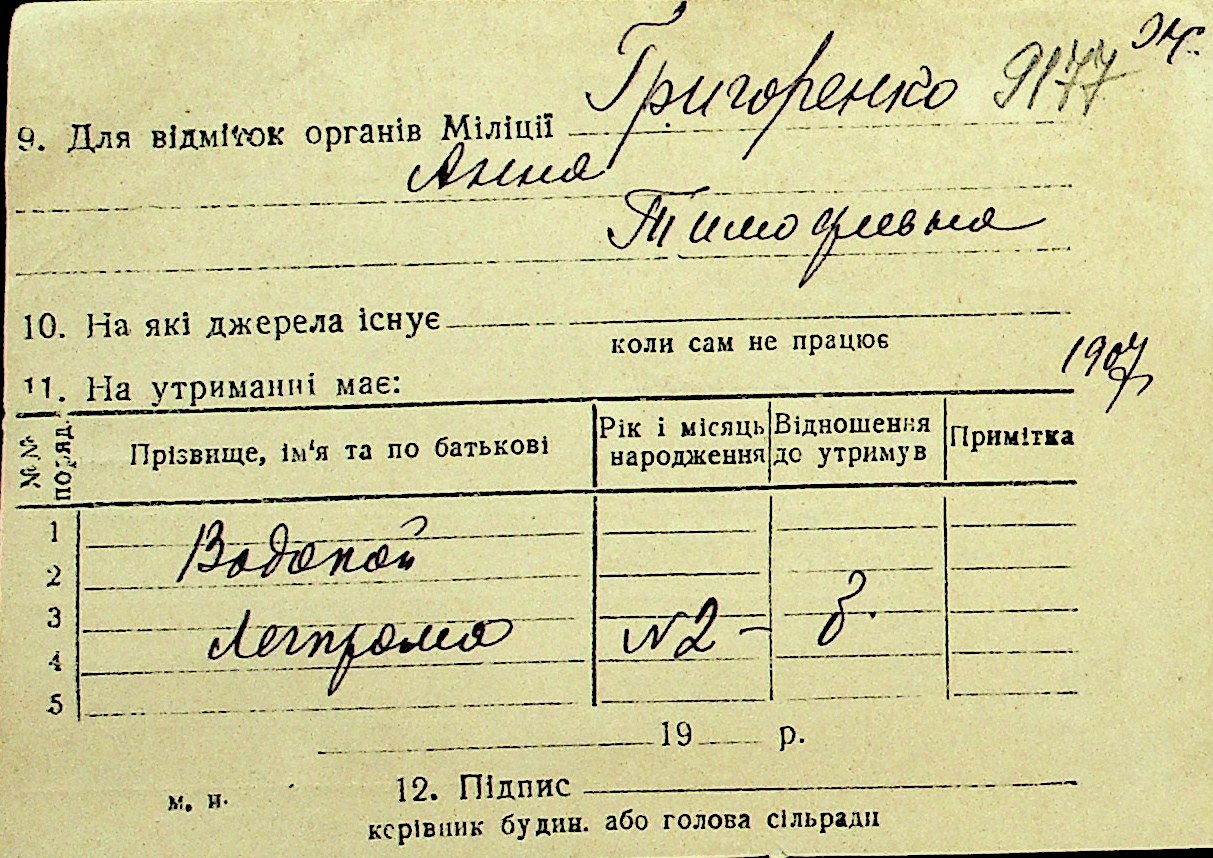 Григоренко 9177
9. Для відміток органів Міліції
Анна
Тимофеевна
10. На які джерела існує
коли сам не працює
1907
11. На утриманні має:
№№ поряд.
Прізвище, ім'я та по батькові
Рік і місяць народження
Відношення до утримув
Примітка
1
Водопой
2
3
Легпрома №2 - 
4
5
19 р.
м. п.
12. Підпис
керівник будин. або голова сільради